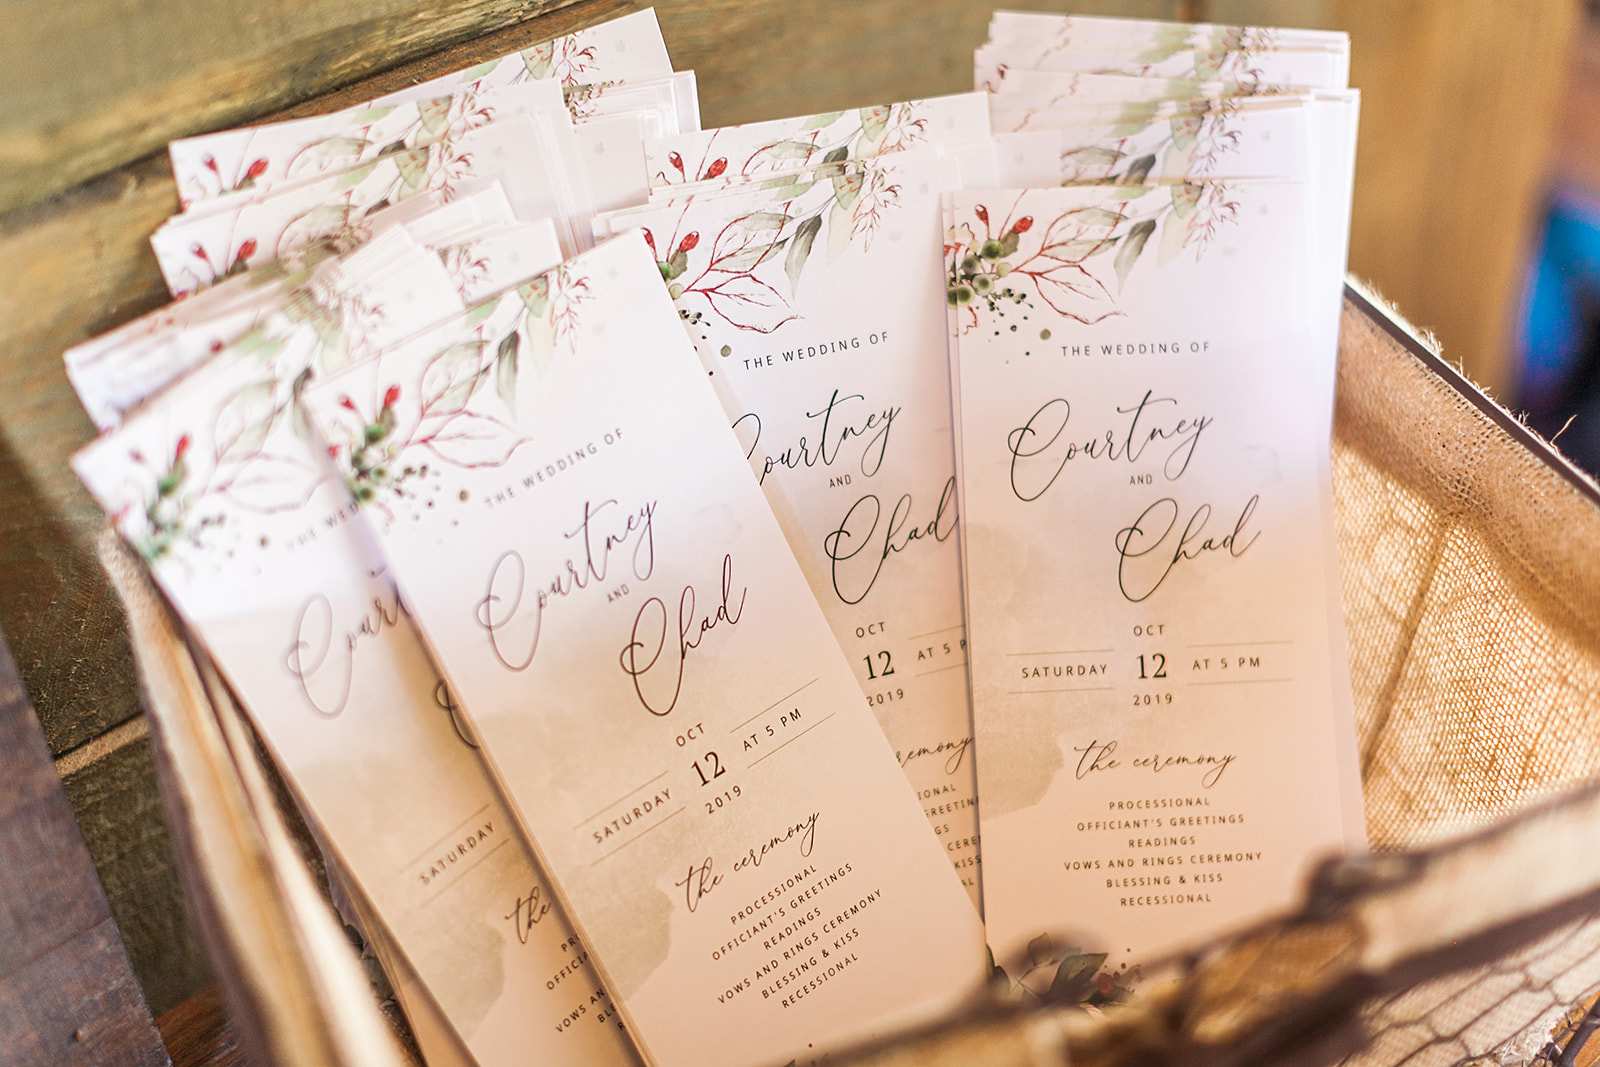 THE WED
Court
SATURDAY
the
THE WEDDING OF
Courtney
AND
Chad
OCT
SATURDAY 12 AT 5 PM
2019
the ceremony
PROCESSIONAL
OFFICIANT'S GREETINGS
READINGS
VOWS AND RINGS CEREMONY
BLESSING & KISS
RECESSIONAL
THE WEDDING OF
Courtney
AND
Chad
OCT
12 AT 5 P
2019
THE WEDDING OF
Courtney
AND
Chad
OCT
SATURDAY 12 AT 5 PM
2019
the ceremony
PROCESSIONAL
OFFICIANT'S GREETINGS
READINGS
VOWS AND RINGS CEREMONY
BLESSING & KISS
RECESSIONAL